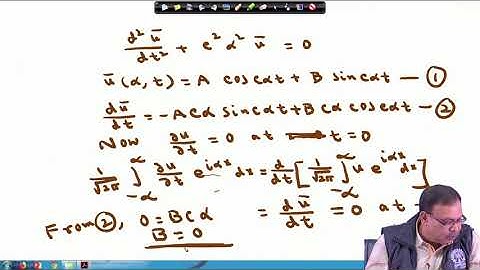 d²ū/dt² + c²α²ū = 0
ū(α,t) = A cos cαt + B sin cαt — ①
dū/dt = -Acα sin cαt + B cα cos cαt — ②
Now ∂u/∂t = 0 at t = 0
1/√2π ∫_{-α}^{α} ∂u/∂t e^{iαx} dx = d/dt [1/√2π ∫_{-α}^{α} u e^{iαx} dx]
From ②, 0 = B c α = dū/dt = 0 at t
B = 0